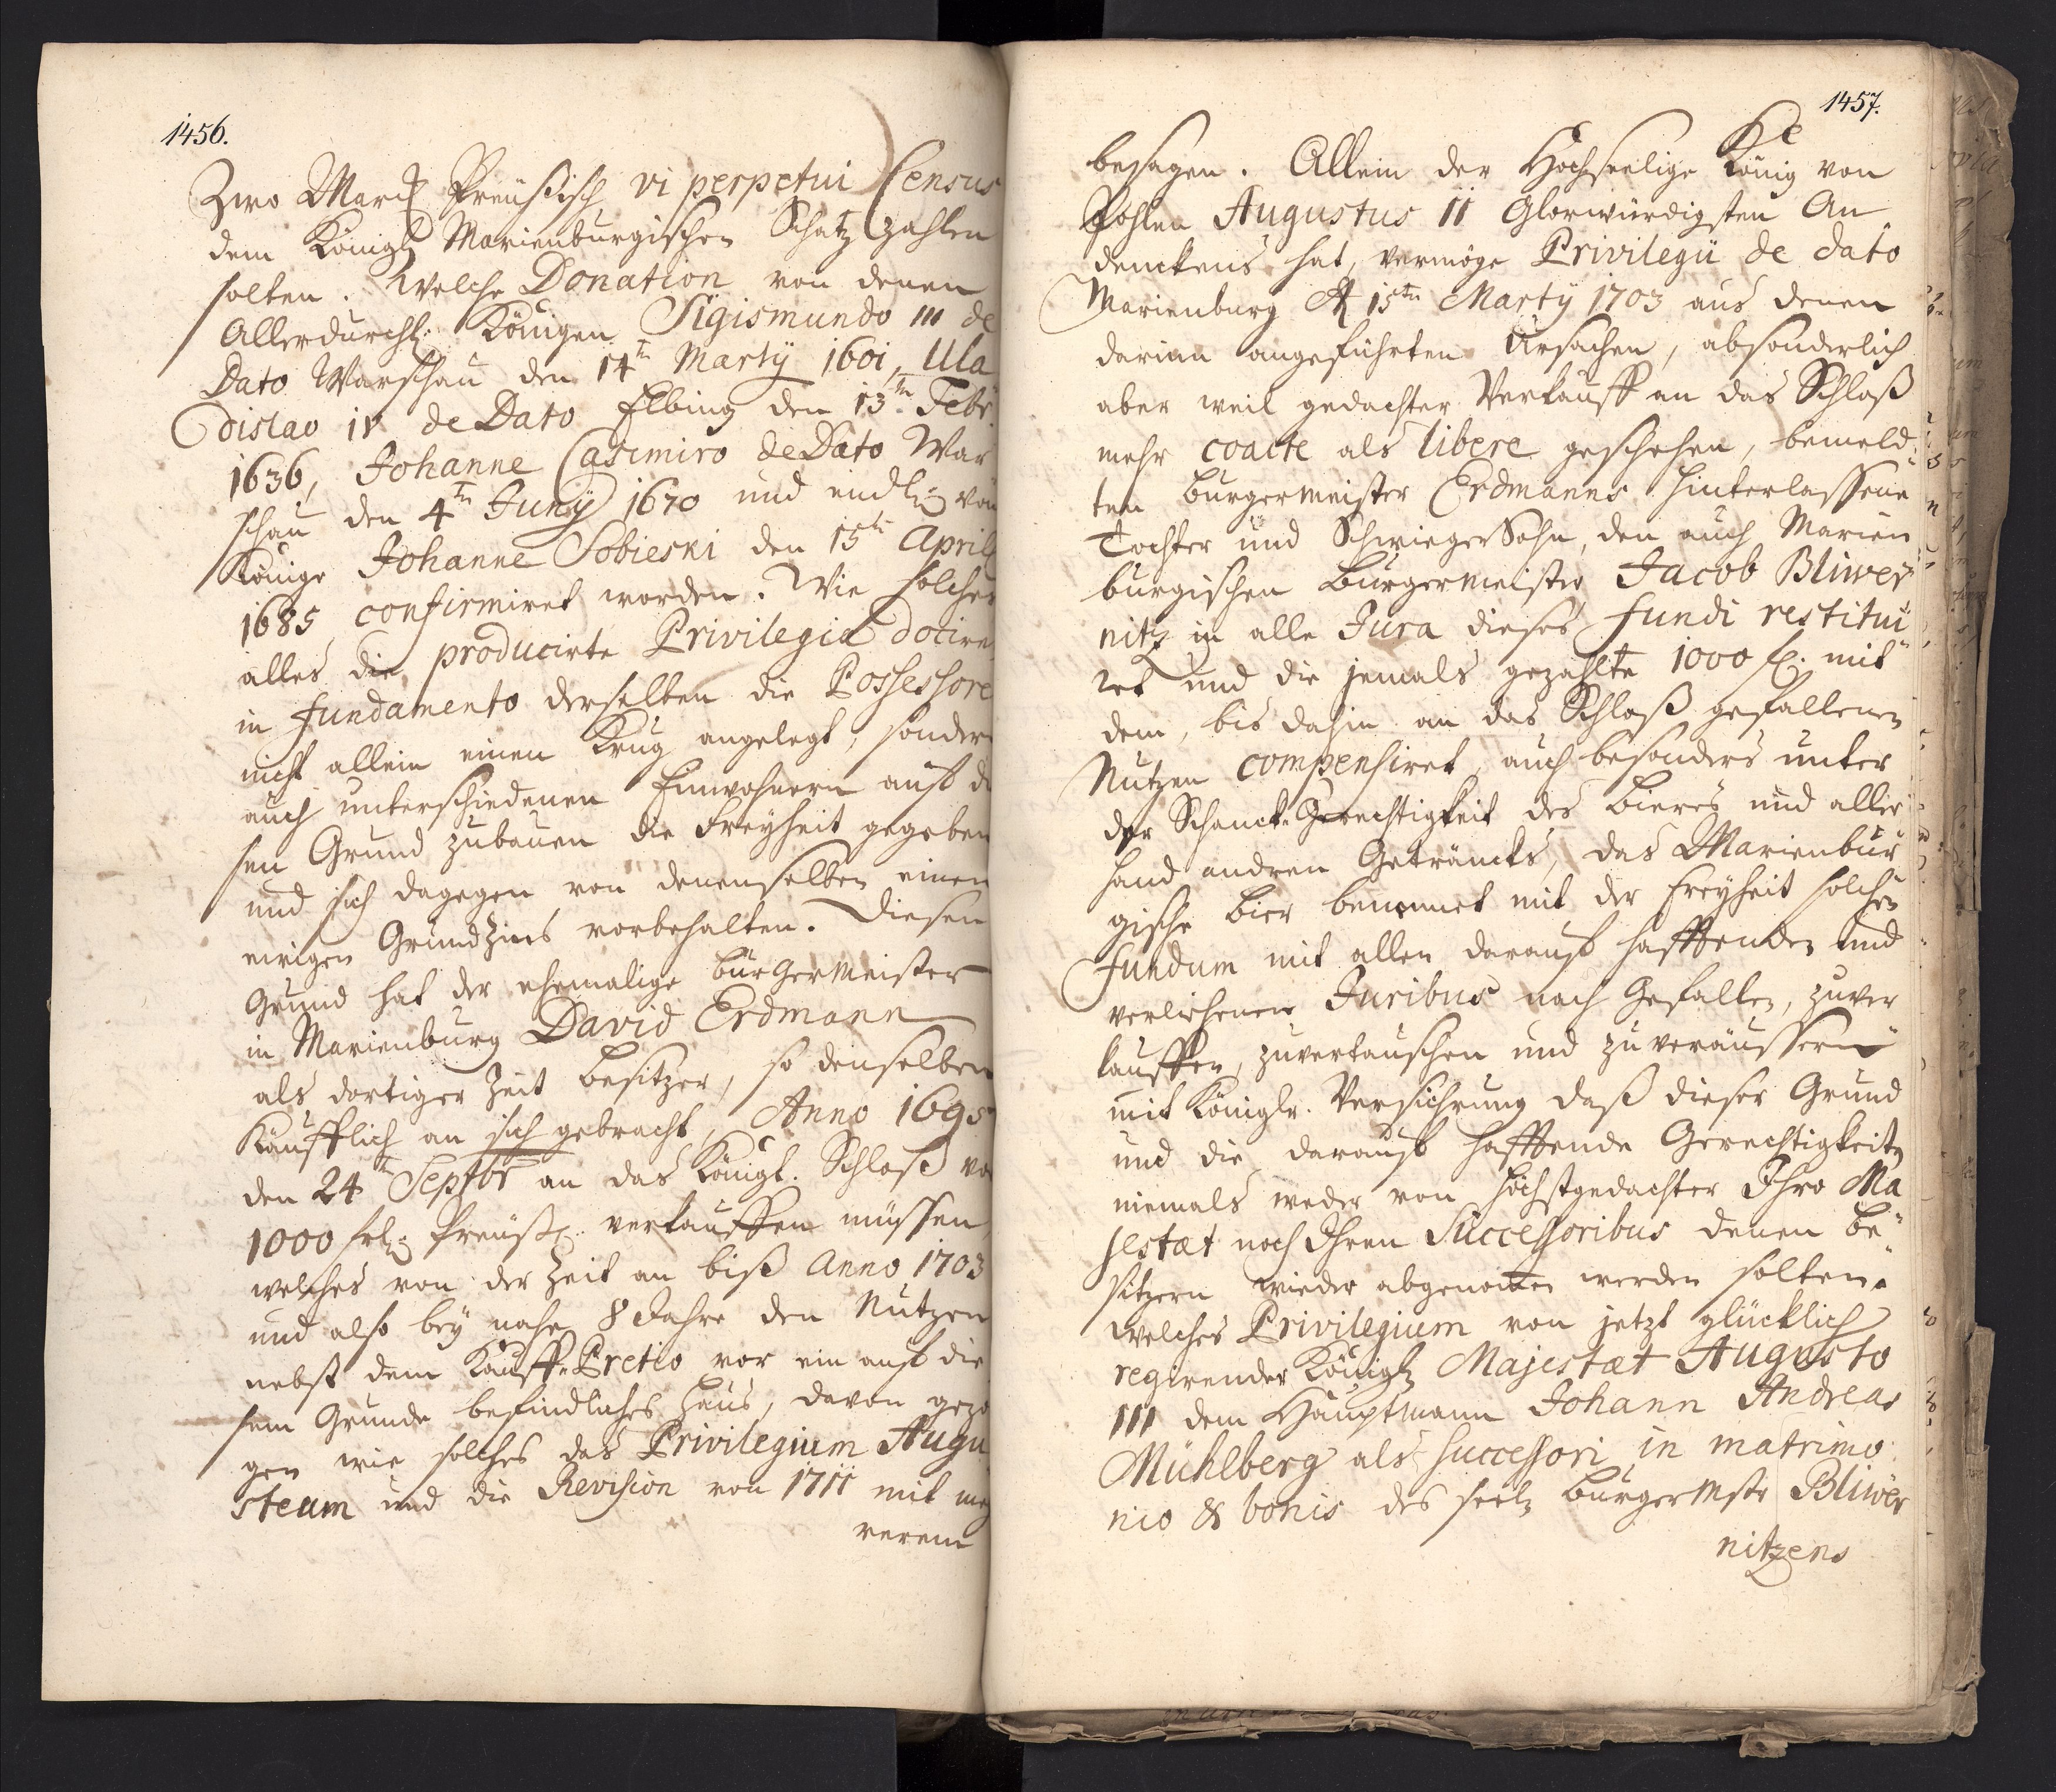 1456.
Zwo Marck Preüßisch vi perpetui Census
dem Königl. Marienburgischen Schatz zahlen
solten. Welche Donation von denen
Allerdurchl: Königen Sigismundo III de
Dato Warschau den 14tn Martÿ 1601, Ula
dislao IV de Dato Elbing den 13tn Febr.
1636, Johanne Casimiro de Dato War
schau den 4tn Junÿ 1670 und endlich von
Könige Johanne Sobieski den 15tn April
1685 confirmiret worden. Wie solches
alles die producirte Privilegia dociren
in fundamento derselben die Possessore
nicht allein einen Krug angelegt, sondern
auch unterschiedenen Einwohnern auf die
sen Grund zubauen die Freyheit gegeben
und sich dagegen von denenselben einen
ewigen Grundzins vorbehalten. Diesen
Grund hat der ehemalige Bürgermeister
in Marienburg David Erdmann
als dortiger Zeit Besitzer, so denselben
Käufflich an sich gebracht, Anno 1695
den 24tn Septbr an das Königl. Schloß vor
1000 frl. Preüß. verkauffen müssen,
welches von der Zeit an biß Anno 1703
und also beÿ nahe 8 Jahre den Nutzen
nebst dem Kauff-Pretio vor ein auf die
sem Grunde befindliches Haus, davon gezo
gen wie solches das Privilegium Augu
steum und die Revision von 1711 mit meh
rerem
1457.
besagen. Allein der Hochseelige König von
Pohlen Augustus II Glorwürdigsten An
denckens hat, vermöge Privilegii de dato
Marienburg d. 15tn Martÿ 1703 aus denen
darinn angeführten Ursachen, absonderlich
aber weil gedachter Verkauff an das Schloß
mehr coacte als libere geschehen, bemeld
ten Bürgermeister Erdmanns hinterlassene
Tochter und SchwiegerSohn, den auch Marien
burgischen Bürgermeister Jacob Bliwer
nitz in alle Jura dieses fundi restitui
ret und die jemals gezahlte 1000 fl. mit
dem, bis dahin an das Schloß gefallenen
Nutzen compensiret, auch besonders unter
der Schanck-Gerechtigkeit des Bieres und aller
hand andren Geträncks, das Marienbur
gische Bier benennet mit der Freyheit solchen
fundum mit allen darauf hafftenden und
verliehenen Juribus nach Gefallen, zuver
kauffen, zuvertauschen und zuveräussern
mit Königlr. Versichrung daß dieser Grund
und die darauf hafftende Gerechtigkeitn
niemals weder von höchstgedachter Ihro Ma
jestæt noch Ihren Successoribus denen Be
sitzern wieder abgenommen werden solten.
Welches Privilegium von jetzt glücklich
regirender Königl. Majestæt Augusto
III dem Hauptmann Johann Andreas
Mühlberg als successori in matrimo
nio & bonis des seel. BürgerMstr Bliwer
nitzens